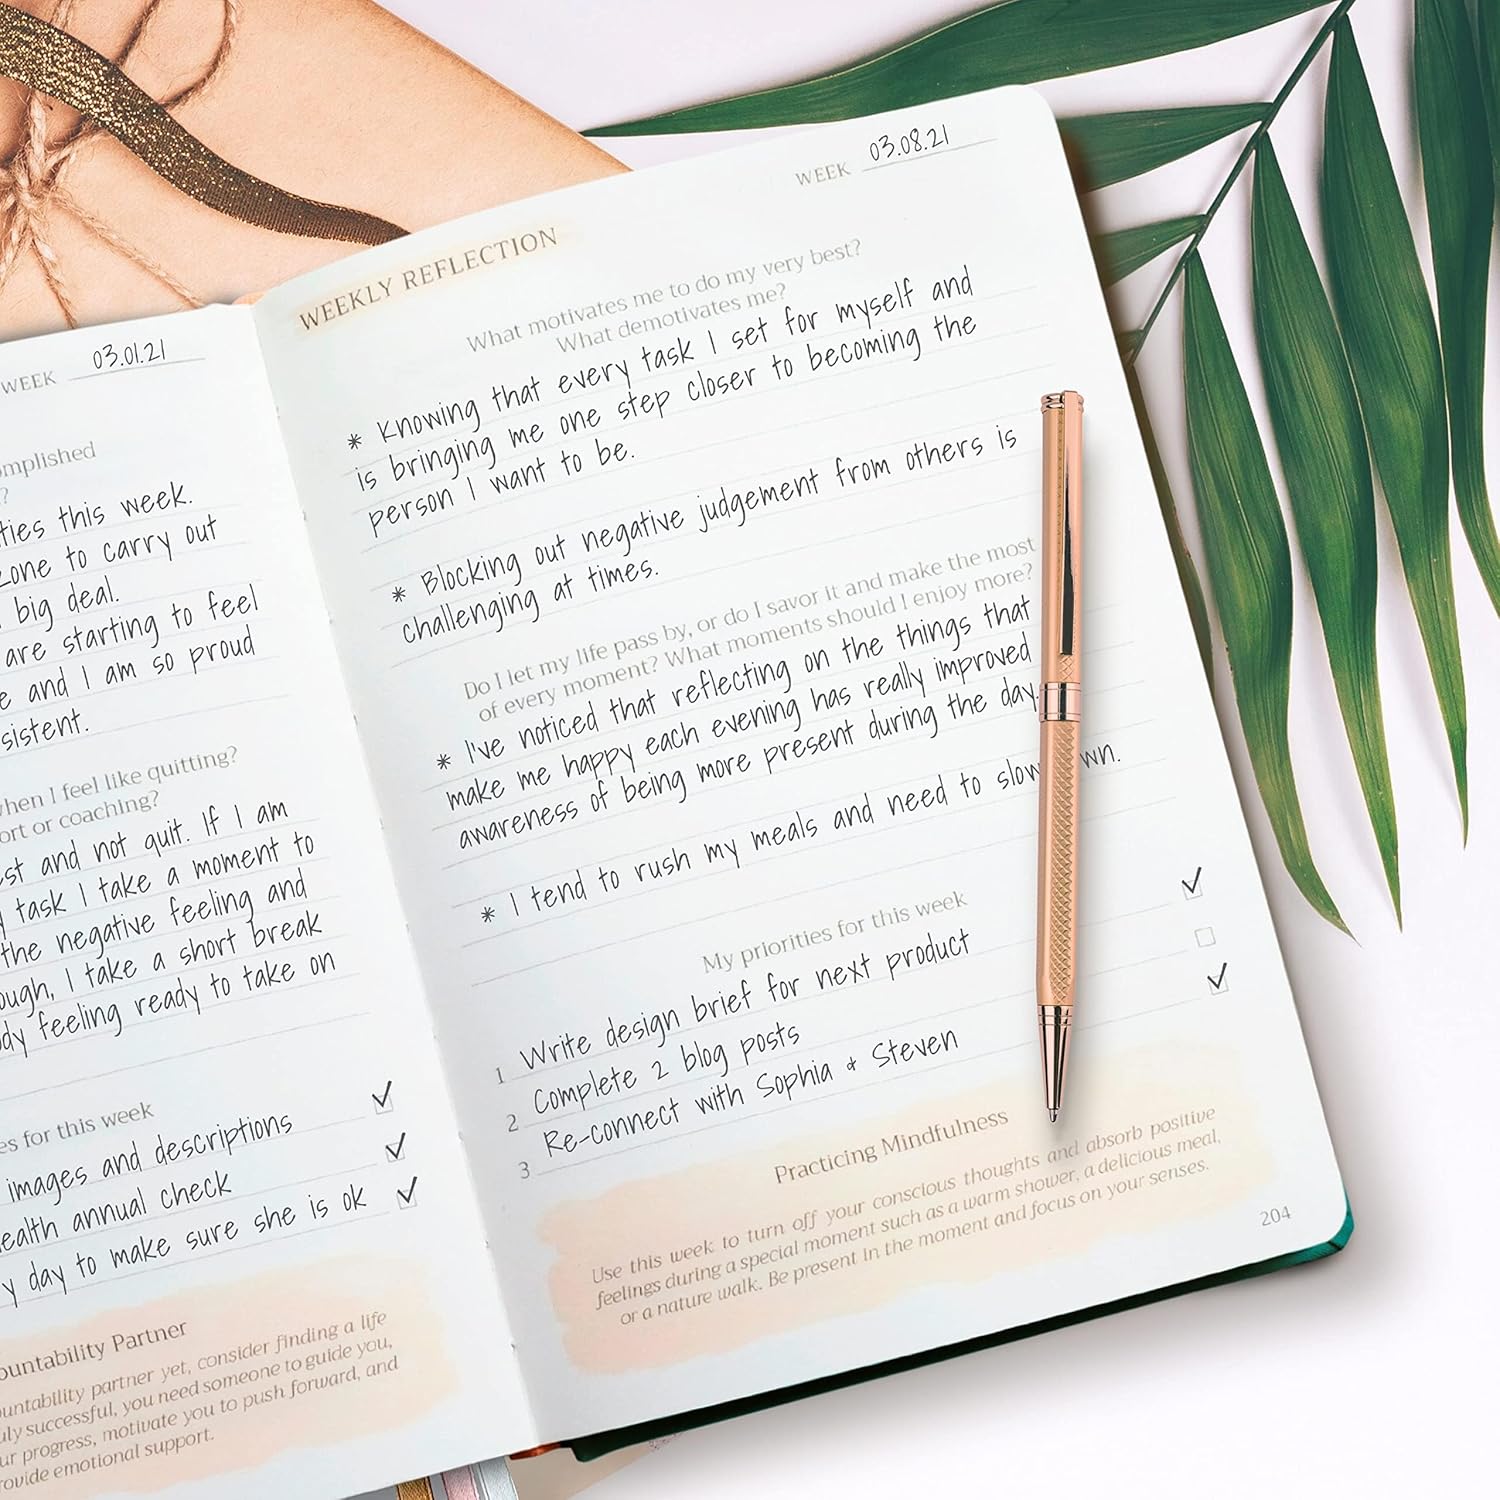 WEEK 03.01.21
omplished
?
ties this week.
zone to carry out
big deal.
are starting to feel
e and I am so proud
sistent.
when I feel like quitting?
ort or coaching?
st and not quit. If I am
y task I take a moment to
the negative feeling and
ough, I take a short break
dy feeling ready to take on
es for this week
images and descriptions
ealth annual check
y day to make sure she is ok
ountability Partner
untability partner yet, consider finding a life
uly successful, you need someone to guide you,
ur progress, motivate you to push forward, and
rovide emotional support.
WEEK 03.08.21
WEEKLY REFLECTION
What motivates me to do my very best?
What demotivates me?
* Knowing that every task I set for myself and
is bringing me one step closer to becoming the
person I want to be.
* Blocking out negative judgement from others is
challenging at times.
Do I let my life pass by, or do I savor it and make the most
of every moment? What moments should I enjoy more?
* I've noticed that reflecting on the things that
make me happy each evening has really improved
awareness of being more present during the day.
* I tend to rush my meals and need to slow wn.
My priorities for this week
1 Write design brief for next product
2 Complete 2 blog posts
3 Re-connect with Sophia & Steven
Practicing Mindfulness
Use this week to turn off your conscious thoughts and absorb positive
feelings during a special moment such as a warm shower, a delicious meal,
or a nature walk. Be present in the moment and focus on your senses.
204